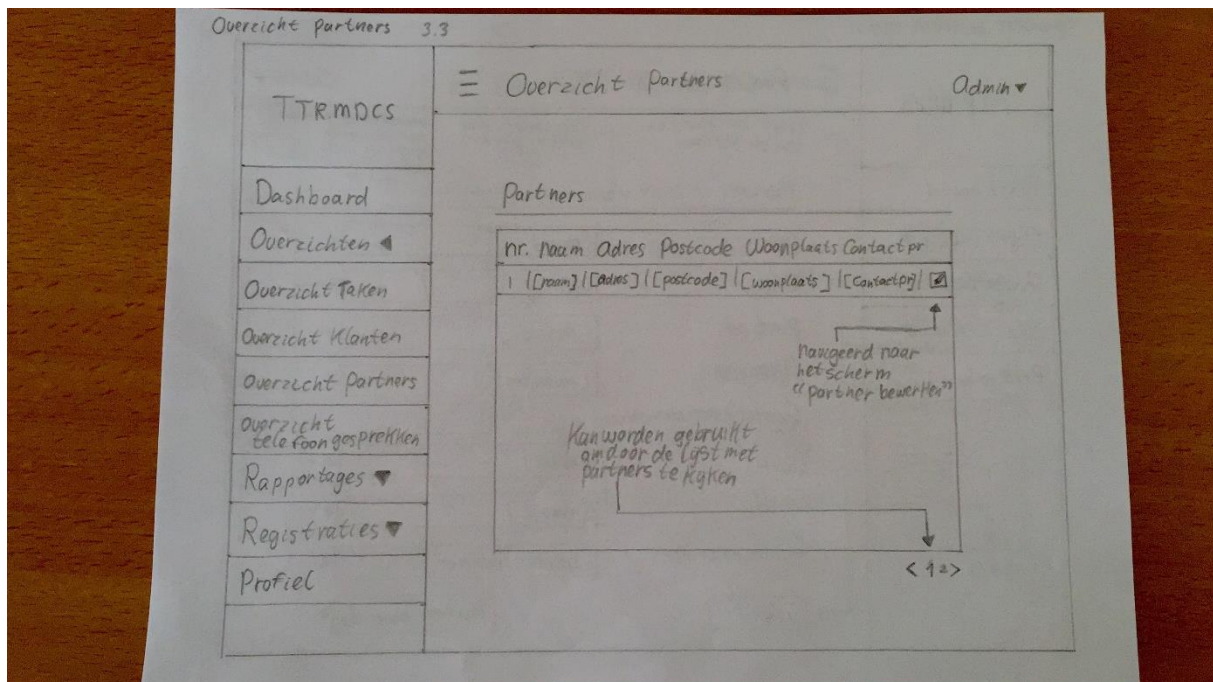 Overzicht partners 3.3
TTRMDCS
☰ Overzicht Partners
Admin ▼
Dashboard
Overzichten ◀
Overzicht Taken
Overzicht Klanten
Overzicht Partners
Overzicht
telefoongesprekken
Rapportages ▼
Registraties ▼
Profiel
Partners
nr. naam adres Postcode Woonplaats Contactpr
1 |[naam]|[adres]|[postcode]|[woonplaats]|[Contactpr]|
navigeerd naar
het scherm
"partner bewerken"
Kan worden gebruikt
om door de lijst met
partners te kijken
< 1 2 >